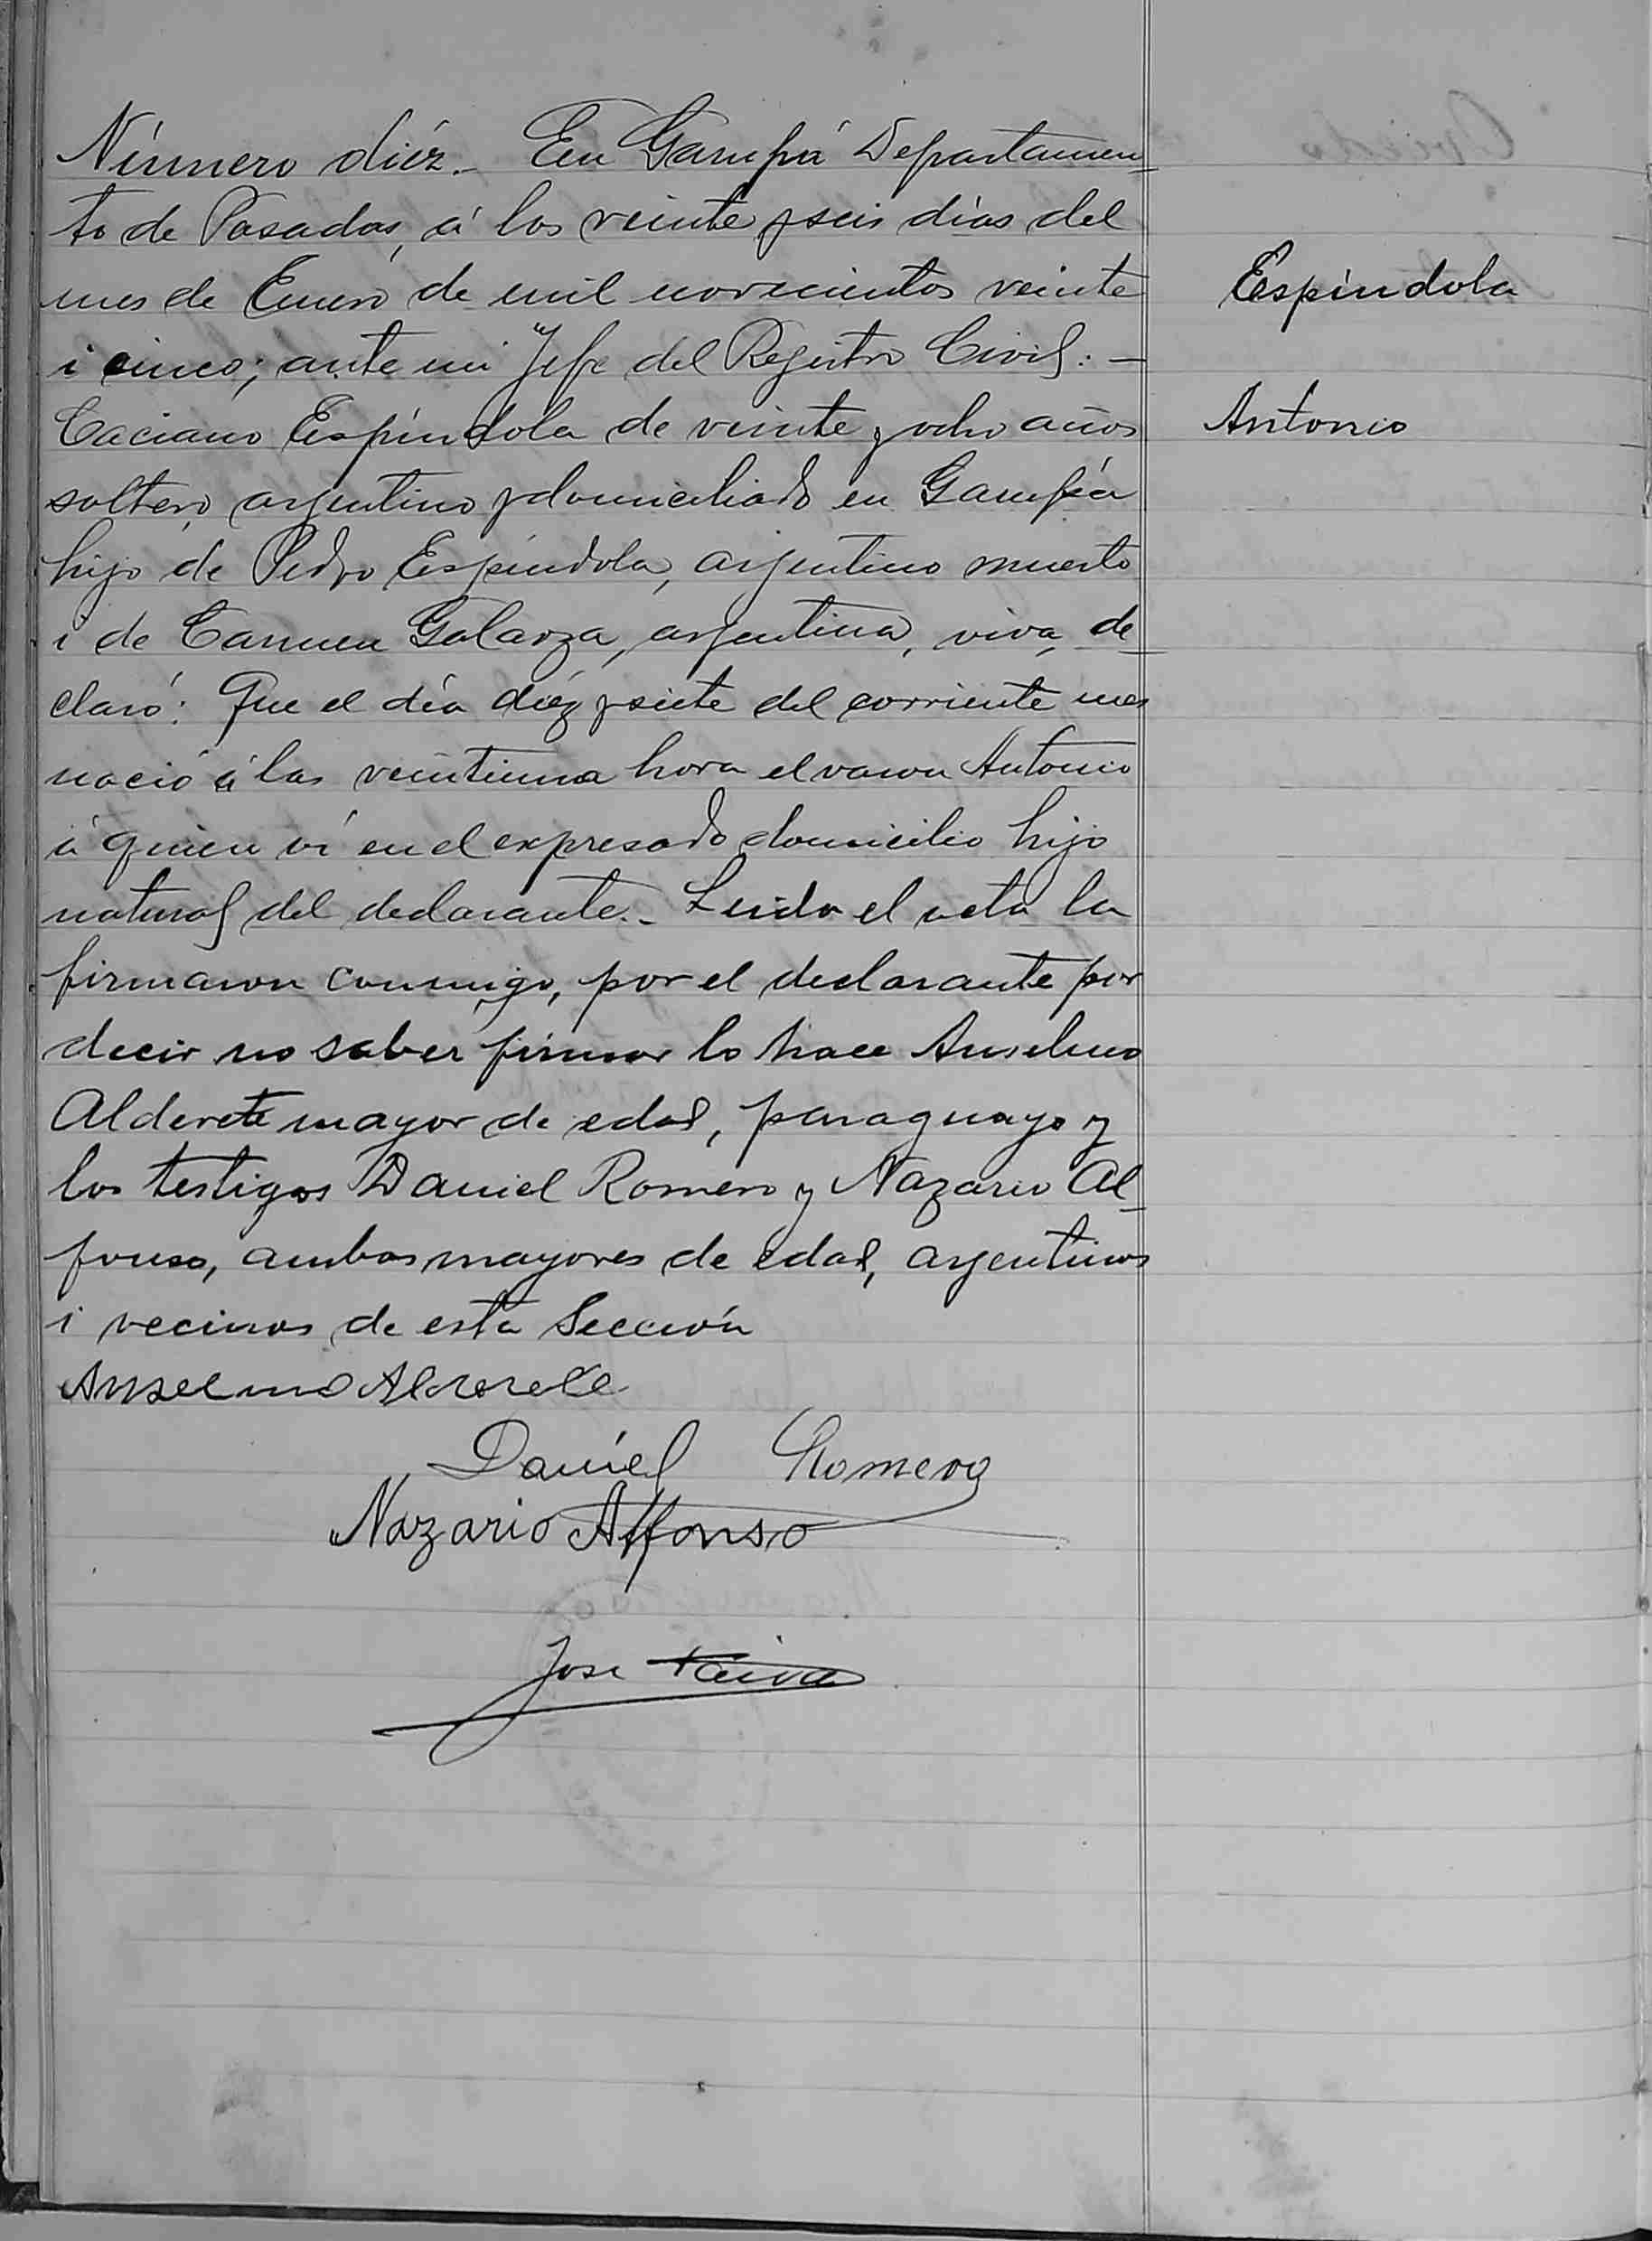 Número diéz.- En Garupá Departamen-
to de Posadas, á los veinte y seis días del
mes de Enero de mil novecientos veinte
i cinco; ante mi Jefe del Registro Civil: -
Caciano Espíndola de veinte y ocho años
soltero, argentino y domiciliado en Garupá
hijo de Pedro Espíndola, argentino muerto
i de Carmen Galarza, argentina, viva, de-
claró: Que el día diéz y siete del corriente mes
nació á las veintiuna hora el varon Antonio
á quien ví en el expresado domicilio hijo
natural del declarante.- Leida el acta la
firmaron conmigo, por el declarante por
decir no saber firmar lo hace Anselmo
Alderete mayor de edad, paraguayo y
los testigos Daniel Romero y Nazario Al-
fonso, ambos mayores de edad, argentinos
i vecinos de esta Sección
Anselmo Alderete
Daniel Romero
Nazario Alfonso
Jose Paiva
Espíndola
Antonio